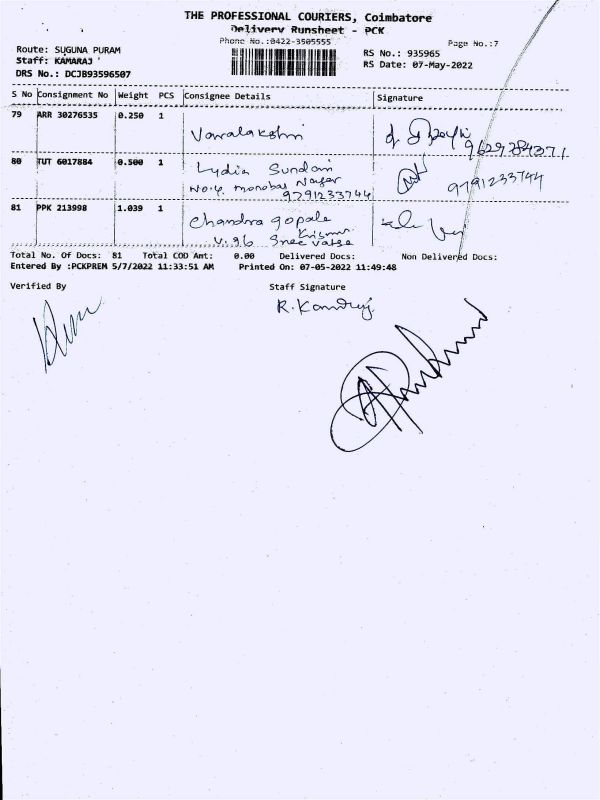 THE PROFESSIONAL COURIERS, Coimbatore
Delivery Runsheet - PCK
Phone No.:0422-3505555
Page No.:7
Route: SUGUNA PURAM
RS No.: 935965
Staff: KAMARAJ
RS Date: 07-May-2022
DRS No.: DCJB93596507
S No Consignment No Weight PCS Consignee Details Signature
79 ARR 30276535 0.250 1
Varalakshmi
9629784371
80 TUT 6017884 0.500 1
Lydia Sundari
No:4, Nagar
9791233744
9791233744
81 PPK 213998 1.039 1
Chandra gopala
Krishna
V.96 Sree Vatsa
Total No. Of Docs: 81 Total COD Amt: 0.00 Delivered Docs: Non Delivered Docs:
Entered By :PCKPREM 5/7/2022 11:33:51 AM Printed On: 07-05-2022 11:49:48
Verified By Staff Signature
R. Kamaraj